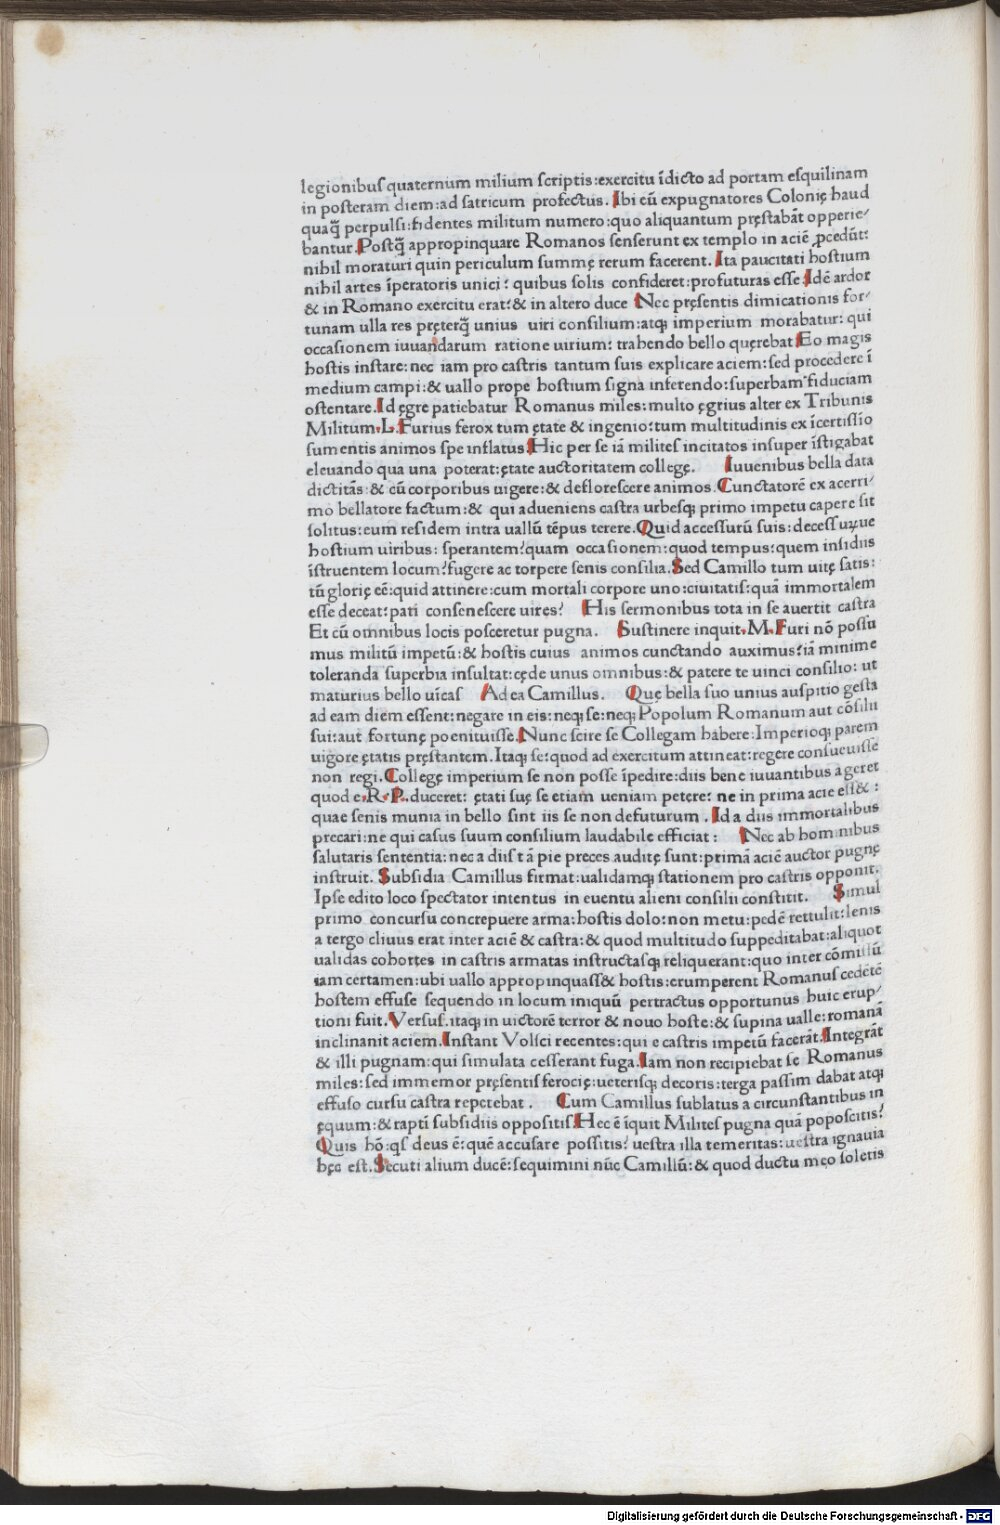 legionibuſ quaternum milium ſcriptis:exercitu īdicto ad portam eſquilinam
in poſteram diem:ad ſatricum profectus. Ibi cū expugnatores Colonię haud
quaꝗ̃ perpulſi:fidentes militum numero:quo aliquantum pręſtabāt opperie-
bantur. Poſtꝗ̃ appropinquare Romanos ſenſerunt ex templo in acię ꝓcedūt:
nihil moraturi quin periculum ſummę rerum facerent. Ita paucitati hoſtium
nihil artes īperatoris unici: quibus ſolis confideret:profuturas eſſe. Idē ardor
& in Romano exercitu erat:& in altero duce Nec pręſentis dimicationis for-
tunam ulla res pręterꝗ̃ unius uiri conſilium:atqꝫ imperium morabatur: qui
occaſionem iuuandarum ratione uirium: trahendo bello quęrebat. Eo magis
hoſtis inſtare: nec iam pro caſtris tantum ſuis explicare aciem:ſed procedere ī
medium campi:& uallo prope hoſtium ſigna inferendo:ſuperbam fiduciam
oſtentare. Id ęgre patiebatur Romanus miles:multo ęgrius alter ex Tribunis
Militum. L. Furius ferox tum ętate & ingenio:tum multitudinis ex īcertiſſīo
ſumentis animos ſpe inflatus. Hic per ſe iā militeſ incitatos inſuper īſtigabat
eleuando qua una poterat:ętate auctoritatem collegę. Iuuenibus bella data
dictitās:& cū corporibus uigere:& defloreſcere animos. Cunctatorē ex acerri-
mo bellatore factum:& qui adueniens caſtra urbeſqꝫ primo impetu capere ſit
ſolitus:eum reſidem intra uallū tēpus terere. Quid acceſſurū ſuis:deceſſuꝝue
hoſtium uiribus: ſperantem?quam occaſionem:quod tempus:quem inſidiis
īſtruentem locum?fugere ac torpere ſenis conſilia. Sed Camillo tum uitę ſatis:
tū glorię eē:quid attinere:cum mortali corpore uno:ciuitatiſ:quā immortalem
eſſe deceat:pati conſeneſcere uires? His ſermonibus tota in ſe auertit caſtra
Et cū omnibus locis poſceretur pugna. Suſtinere inquit. M. Furi nō poſſu
mus militū impetū:& hoſtis cuius animos cunctando auximus:iā minime
toleranda ſuperbia inſultat:cęde unus omnibus:& patere te uinci conſilio: ut
maturius bello uīcaſ Ad ea Camillus. Quę bella ſuo unius auſpitio geſta
ad eam diem eſſent:negare in eis:neqꝫ ſe:neqꝫ Popolum Romanum aut cōſilii
ſui:aut fortunę poenituiſſe. Nunc ſcire ſe Collegam habere:Imperioqꝫ parem
uigore ętatis pręſtantem. Itaqꝫ ſe:quod ad exercitum attineat:regere conſueuiſſe
non regi. Collegę imperium ſe non poſſe īpedire:diis bene iuuantibus ageret
quod e. R. P. duceret: ętati ſuę ſe etiam ueniam petere: ne in prima acie eſſ&:
quae ſenis munia in bello ſint iis ſe non defuturum. Id a diis immortalibus
precari:ne qui caſus ſuum conſilium laudabile efficiat: Nec ab hominibus
ſalutaris ſententia:nec a diiſ tā pie preces auditę ſunt:primā acię auctor pugnę
inſtruit. Subſidia Camillus firmat:ualidamqꝫ ſtationem pro caſtris opponit.
Ipſe edito loco ſpectator intentus in euentū alieni conſilii conſtitit. Simul
primo concurſu concrepuere arma:hoſtis dolo:non metu:pedē rettulit:lenis
a tergo cliuus erat inter acię & caſtra:& quod multitudo ſuppeditabat:aliquot
ualidas cohortes in caſtris armatas inſtructaſqꝫ reliquerant:quo inter cōmiſſū
iam certamen:ubi uallo appropinquaſſ& hoſtis:erumperent Romanuſ cedētē
hoſtem effuſe ſequendo in locum iniquū pertractus opportunus huic erup-
tioni fuit. Verſuſ.itaqꝫ in uictorē terror & nouo hoſte:& ſupina ualle:romanā
inclinanit aciem. Inſtant Volſci recentes:qui e caſtris impetū facerāt. Integrāt
& illi pugnam:qui ſimulata ceſſerant fuga. Iam non recipiebat ſe Romanus
miles:ſed immemor pręſentiſ ferocię:ueteriſqꝫ decoris:terga paſſim dabat atqꝫ
effuſo curſu caſtra repetebat. Cum Camillus ſublatus a circunſtantibus in
ęquum:& raptī ſubſidiis oppoſitiſ. Hec ē īquit Militeſ pugna quā popoſcitis?
Quis hō:qſ deus ē:quē accuſare poſſitis?ueſtra illa temeritas:ueſtra ignauia
hęc eſt. Secuti alium ducē:ſequimini nūc Camillū:& quod ductu meo ſoletis
Digitalisierung gefördert durch die Deutsche Forschungsgemeinschaft - DFG